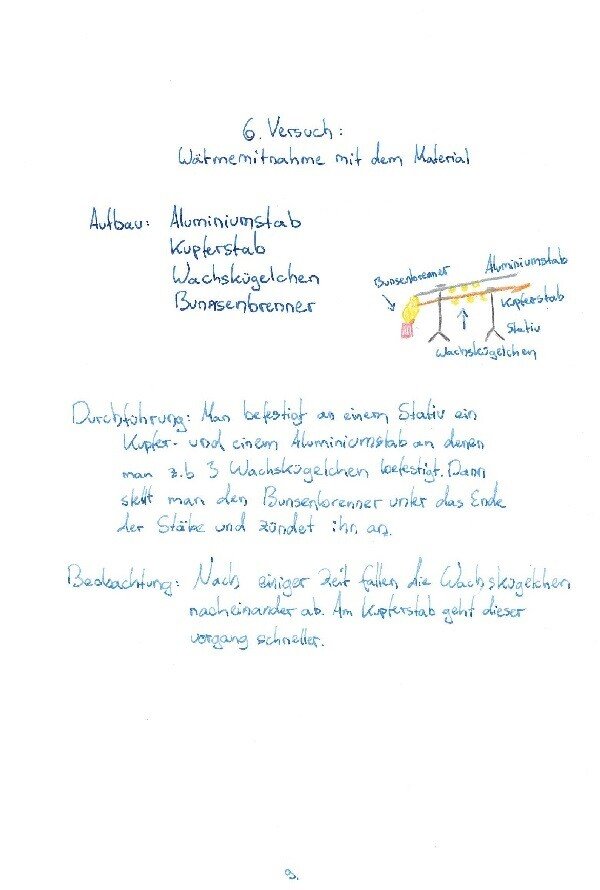 6. Versuch:
Wärmemitnahme mit dem Material
Aufbau: Aluminiumstab
Kupferstab
Wachskügelchen
Bunnsenbrenner
Bunsenbrenner
Aluminiumstab
Kupferstab
Stativ
Wachskügelchen
Durchführung: Man befestigt an einem Stativ ein
Kupfer- und einem Aluminiumstab an denen
man z.b 3 Wachskügelchen befestigt. Dann
stellt man den Bunsenbrenner unter das Ende
der Stäbe und zündet ihn an.
Beobachtung: Nach einiger Zeit fallen die Wachskügelchen
nacheinander ab. Am Kupferstab geht dieser
vorgang schneller.
9.